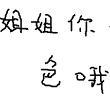 姐姐你
色哦